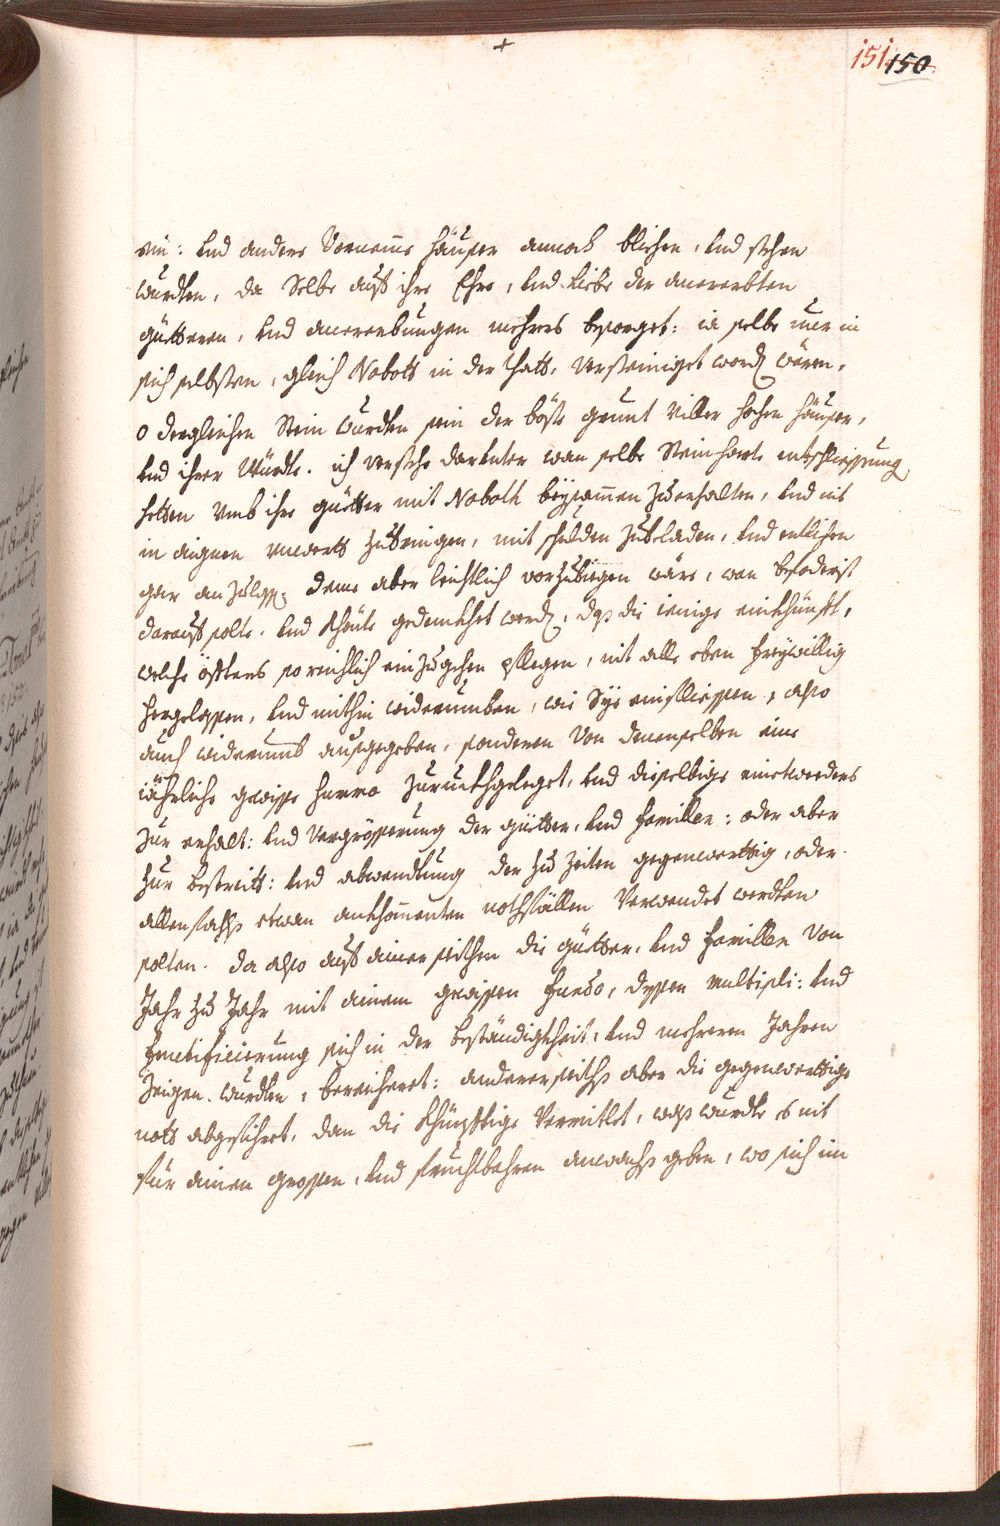 +
151 150
nin: und andere Vorneme häuser annoch blichen, und stehen
wurdten, da Selbe auß ihre Ehre, und Liebe der anererbten
güetteren, und anererbungen mehrers besorget: ia selbe nur in
sich selbsten, gleich Naboth in der thatt, versteiniget word wären,
o dergleichen Stein wurdten sein der böste grunt viller hochen häuser,
und ihrer Würdte. ich verstehe darunter wan selbe Steinharte entschliessung
hetten umb ihre güetter mit Naboth beysammen zu erhalten, und nit
in aignen unwerts zu bringen, mit schulden zu beladen, und entlichen
gar an zu deme aber leichtlich vorzubiegen wäre, wan besoderist
darauf solte, und khönte gedenkhet werd, daß die ienige einkhünfft,
welche öffters so reichlich ein zu gehen pflegen, nit alle eben freywillig
hergelassen, und mithin widerumben, wie Sye einfliessen, also
auch widerumb außgegeben, sonderen Von denenselben eine
iährliche gewisse summa zuruckhgeleget, und dieselbige eintweders
zur erhalt: und Vergrösserung der güetter, und famillen: oder aber
zur bestreitt: und abwendtung der zu zeiten gegenwerttig, oder
allenfahls etwan ankhomenten nothfällen Verwendet werdten
solten. da also auß ainer seithen die güetter, und famillen Von
Jahr zu Jahr mit ainem gewissen fundo, dessen multipli: und
fructificierung sich in der beständigkheit, und mehreren Jahren
zeigen wurdten, bereicheret: anderer seiths aber die gegenwerttige
noth abgeführet, dan die khünfftige Vermitlet, waß wurdte es nit
für ainen grossen, und fruchtbahren anwachs geben, wo sich im